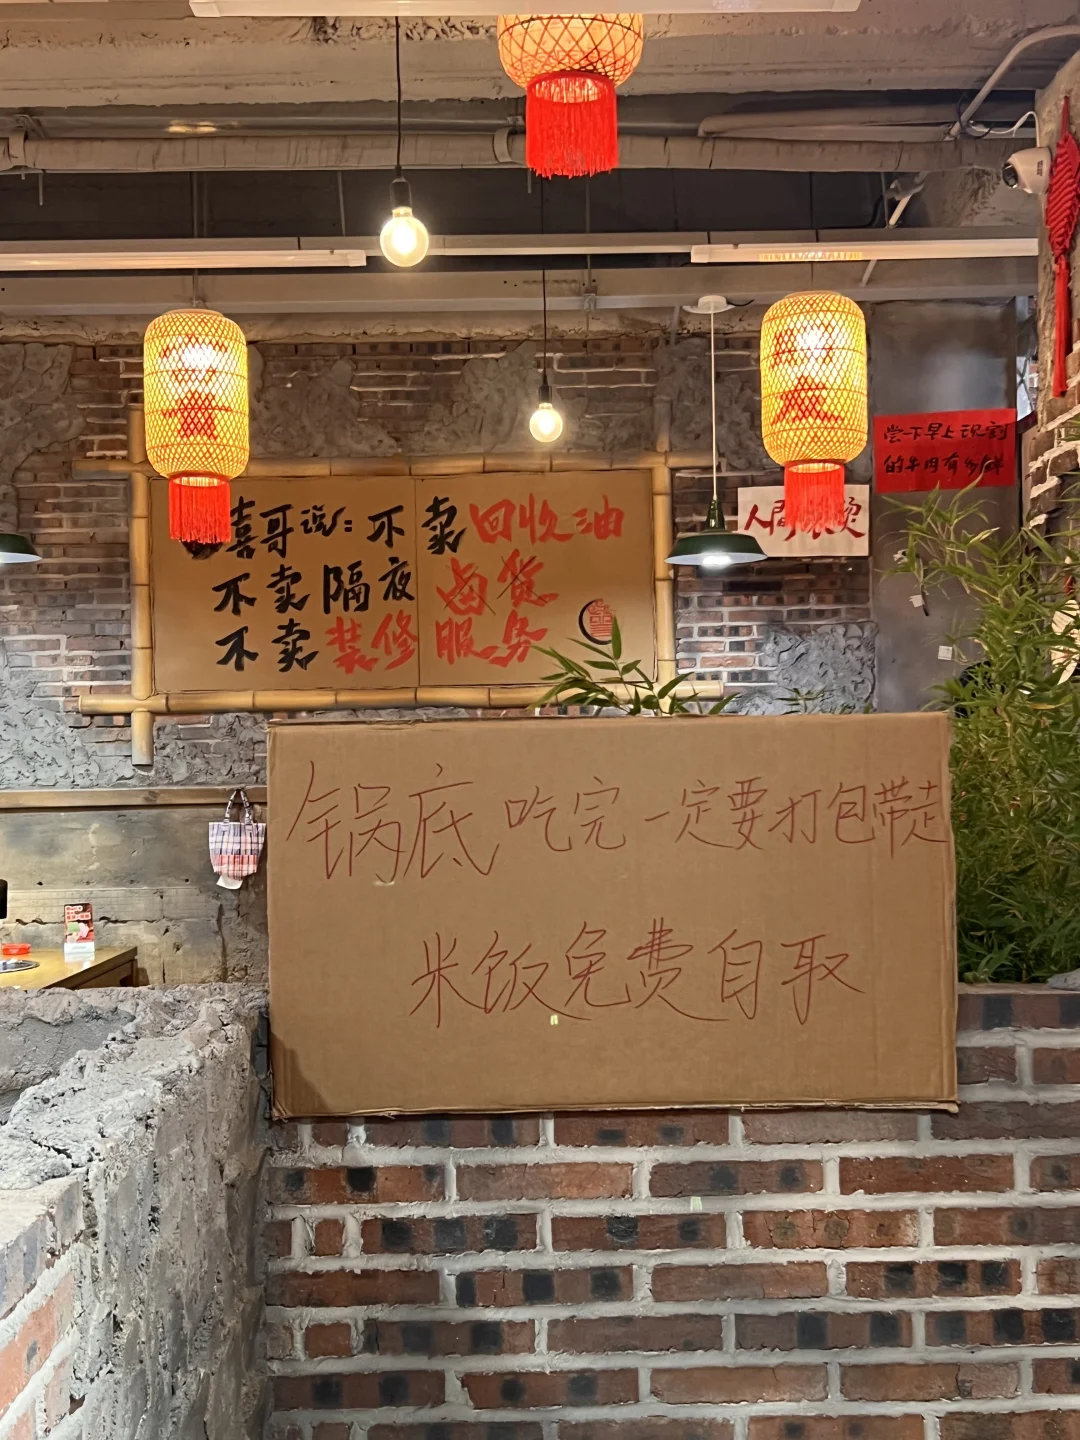 喜哥说:不卖回收油
不卖隔夜卤货
不卖装修服务
尝下早上现割
的牛肉有多鲜
锅底吃完一定要打包带走
米饭免费自取